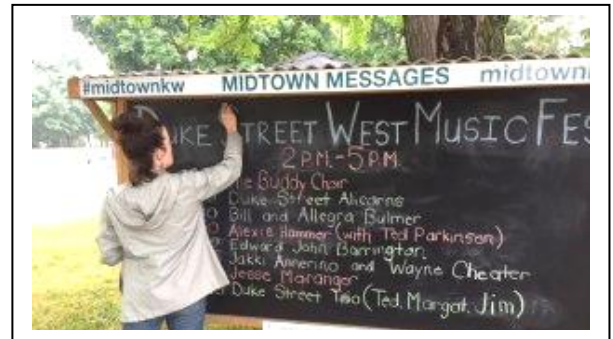 #midtownkw MIDTOWN MESSAGES midtown
DUKE STREET WEST MUSIC FES
2 P.M.-5 P.M.
The Buddy Choir
Duke Street Alicorns
Bill and Allegra Bulmer
Alexie Hammer (with Ted Parkinson)
Edward John Barrington
Jakki Annerino and Wayne Cheater
Jesse Maranger
Duke Street Trio (Ted, Margot, Jim)